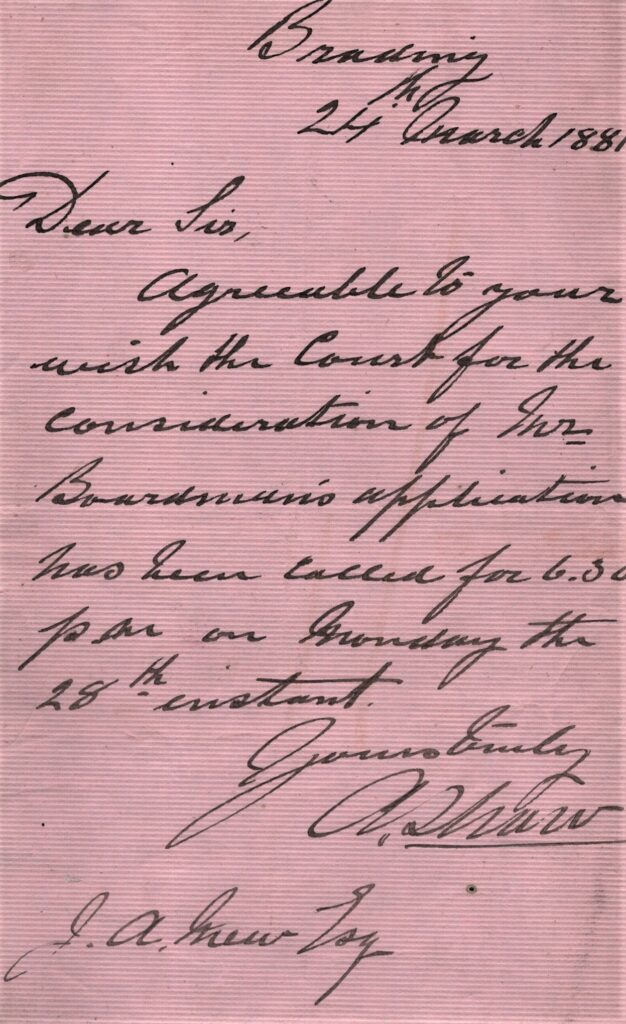 Brading
24th March 1881
Dear Sir,
Agreeable to your
wish the Court for the
consideration of Mr
Boardman's application
has been called for 6.30
p m on Monday the
28th instant.
Yours truly
A. Shaw
J. A. Mew Esq